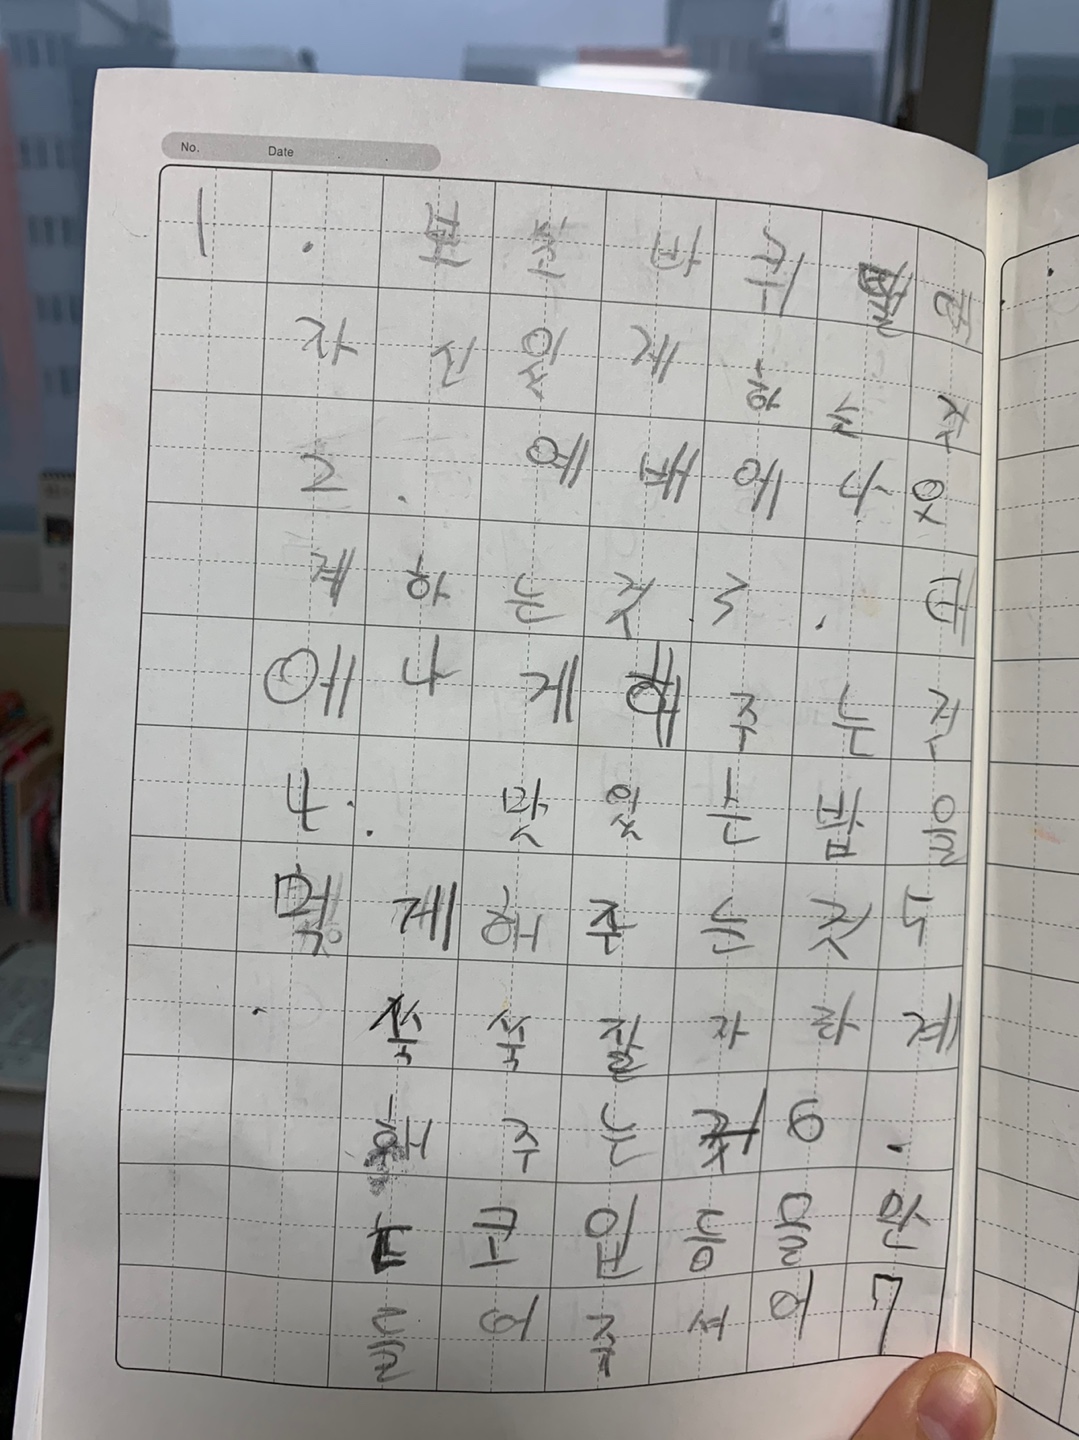 No. Date
1 . 본 준 바 뀌
자 신 있 게 하 는 것
2 . 예 배 에 나 오
게 하 는 것 3 . 태
어 나 게 해 주 는 것
4 . 맛 있 는 밥 을
먹 게 해 주 는 것 5
. 쑥 쑥 잘 자 라 게
해 주 는 것 6 .
눈 코 입 등 을 만
들 어 주 셔 어 7